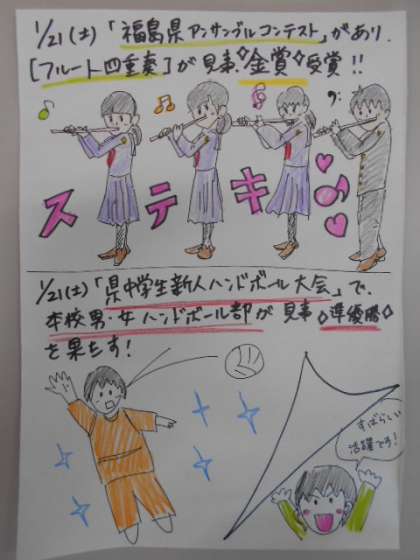 1/21(土)「福島県アンサンブルコンテスト」があり、
[フルート四重奏]が見事◇金賞◇受賞!!
ステキ
1/21(土)「県中学生新人ハンドボール大会」で、
本校男・女ハンドボール部が見事◇準優勝◇
を果たす!
すばらしい
活躍です!